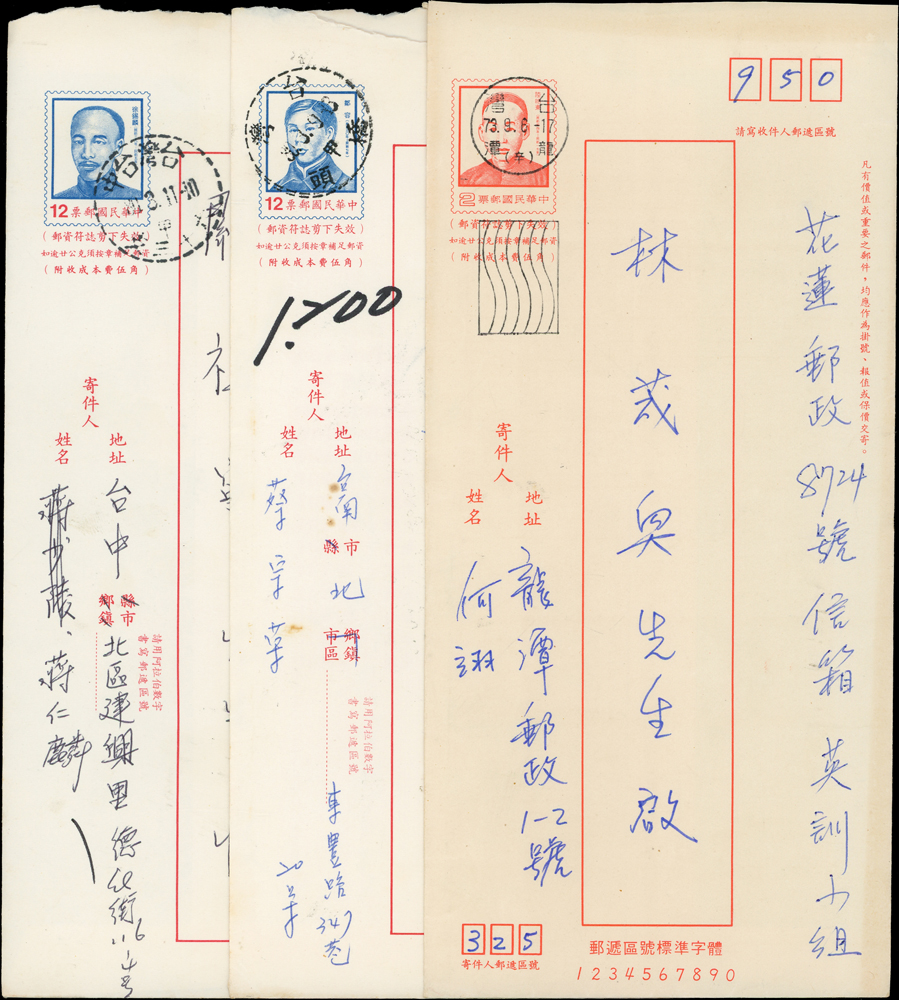 中華民國郵票12
(郵資符誌剪下失效)
(附收成本費伍角)
寄件人
地址
姓名
台中
縣市
鄉鎮
北區建興里德化街
蔣仁麟
請用阿拉伯數字
書寫郵遞區號
中華民國郵票12
(郵資符誌剪下失效)
如逾廿公克須按章補足郵資
(附收成本費伍角)
寄件人
地址
姓名
台南
縣市
北
鄉鎮
市區
東豐路347巷
20弄
蔡宗
請用阿拉伯數字
書寫郵遞區號
950
請寫收件人郵遞區號
凡有價值或重要之郵件,均應作為掛號、報值或保價交寄。
花蓮郵政8724號信箱英訓小組
林茂奥先生啟
台灣
73.9.6.-17
龍潭
中華民國郵票2
(郵資符誌剪下失效)
如逾廿公克須按章補足郵資
(附收成本費伍角)
寄件人
地址
姓名
龍潭郵政1-2號
何翊
325
寄件人郵遞區號
郵遞區號標準字體
1234567890